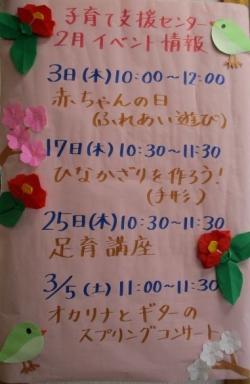 子育て支援センター
2月イベント情報
3日(木)10:00～12:00
赤ちゃんの日
(ふれあい遊び)
17日(木)10:30～11:30
ひなかざりを作ろう!
(手形)
25日(木)10:30～11:30
足育講座
3/5(土)11:00～11:30
オカリナとギターの
スプリングコンサート